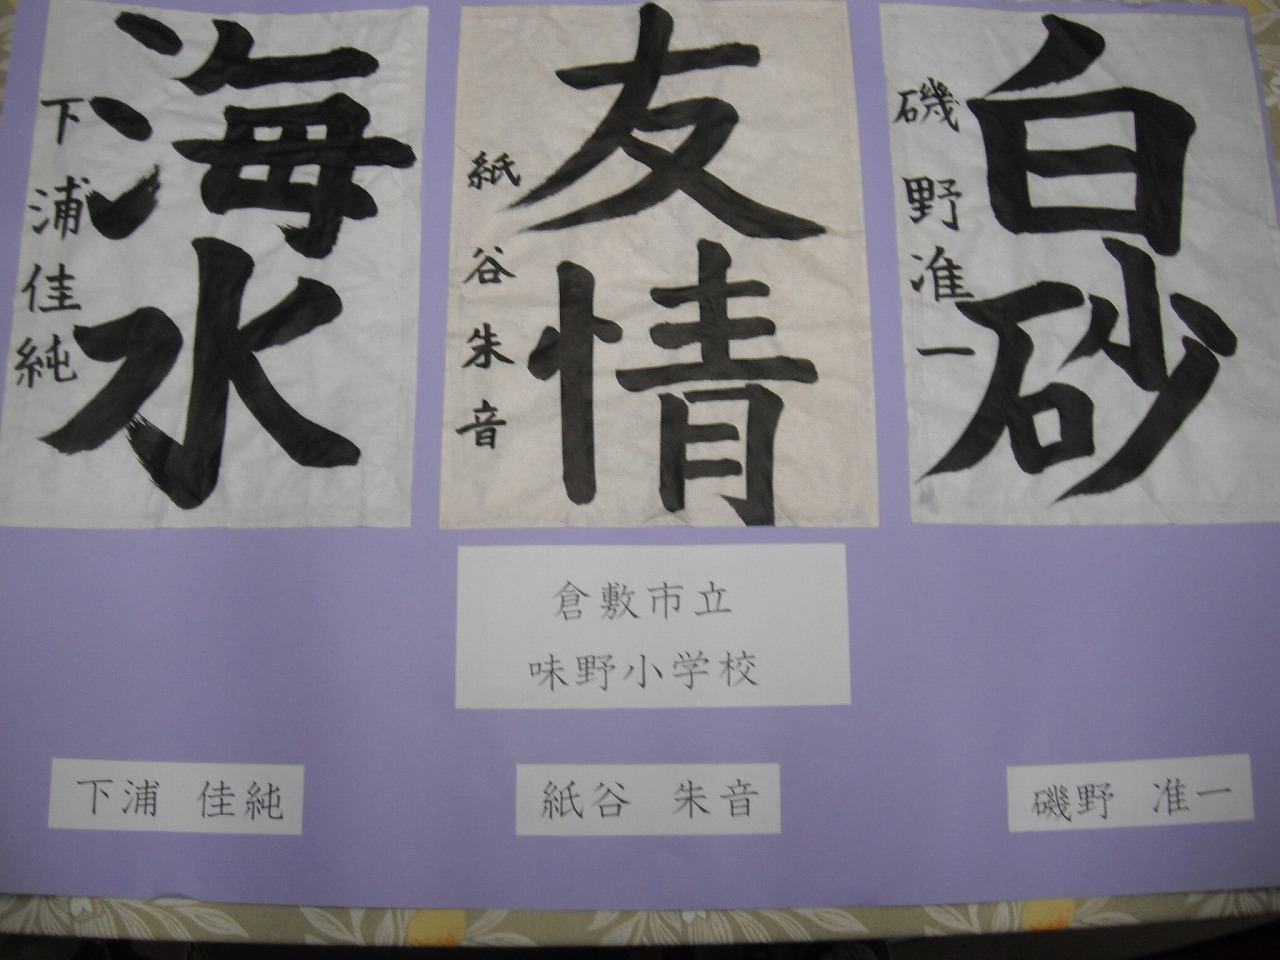 白砂
磯野准一
友情
紙谷朱音
海水
下浦佳純
倉敷市立
味野小学校
下浦 佳純
紙谷 朱音
磯野 准一